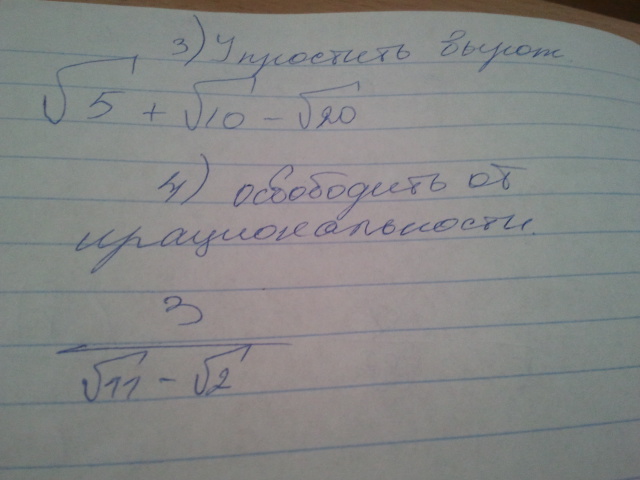 3) Упростить выраж.
√5 + √10 - √20
4) освободить от
ирациональности.
3
√11 - √2